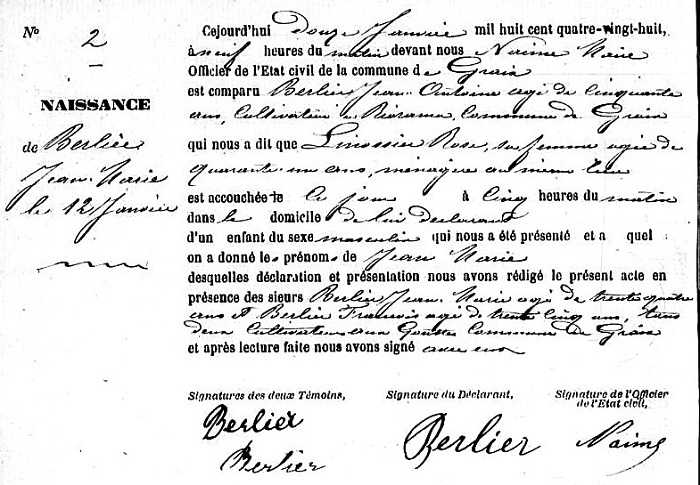 No 2
NAISSANCE
de Berlier
Jean Marie
le 12 Janvier
Cejourd'hui Douze Janvier mil huit cent quatre-vingt-huit,
à neuf heures du matin devant nous Naime Maire
Officier de l'Etat civil de la commune de Graix
est comparu Berlier Jean Antoine agé de cinquante
ans, Cultivateur a Commune de Graix
qui nous a dit que Limossier Rose, sa femme agée de
quarante un ans, ménagère au même lieu
est accouchée le Ce jour à Cinq heures du matin
dans le domicile de lui declarant
d'un enfant du sexe masculin qui nous a été présenté et a quel
on a donné le prénom de Jean Marie
desquelles déclaration et présentation nous avons rédigé le présent acte en
présence des sieurs Berlier Jean Marie agé de trente quatre
ans et Berlier Francois agé de trente Cinq ans, tous
deux Cultivateurs aux Commune de Graix
et après lecture faite nous avons signé avec eux
Signatures des deux Témoins, Signature du Déclarant, Signature de l'Officier
de l'Etat civil,
Berlier
Berlier
Berlier
Naime